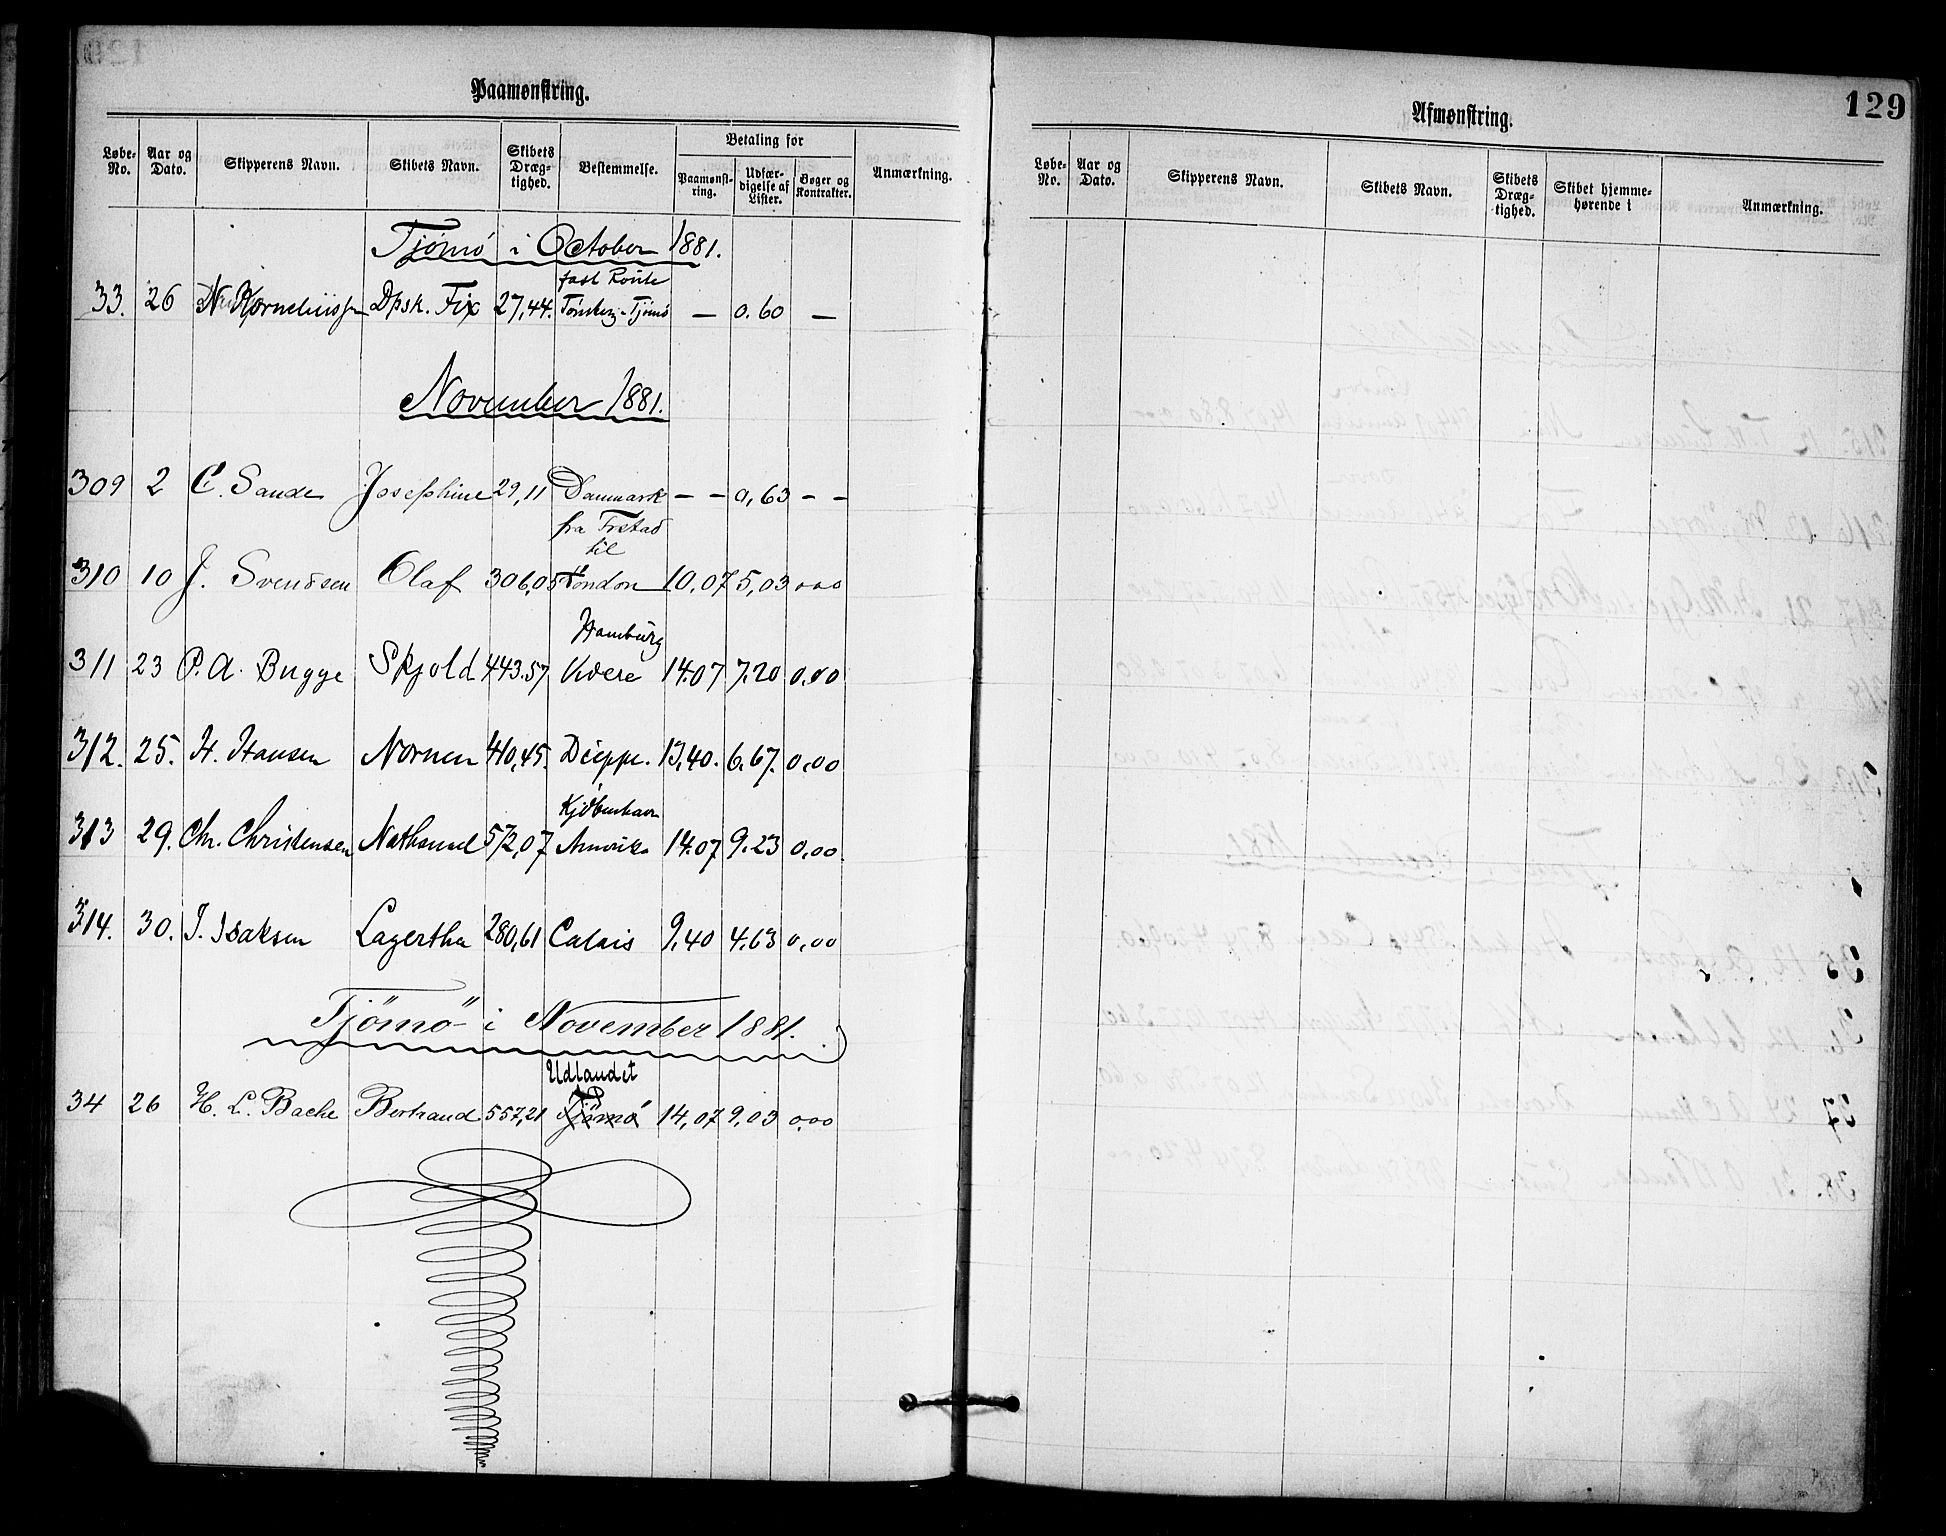 Paamønstring.
Løbe-No. Aar og Dato. Skipperens Navn. Skibets Navn. Skibets Dræg-tighed. Bestemmelse. Betaling for Paamønst-ring. Udfær-digelse af Lister. Bøger og Kontrakter. Anmærkning.
Tjømø i October 1881.
fast Route
33. 26 Korneliussen Dpsk. Fix 27,44. Tønsberg-Tjømø — 0.60 —
November 1881.
309 2 C. Sande Josephine 29,11 Danmark — — 0,63 — —
fra Frstad
til
310 10 J. Svendsen Olaf 306,05 London 10.07 5,03 0,00
Hamburg
311 23 P. A. Bugge Skjold 443.57 14.07 7.20 0.00
312. 25. H. Hansen Nornen 410,45. Dieppe. 13,40. 6.67. 0,00
Kjöbenhavn
313 29. Chr. Christensen Nathanael 572,07 Amerika 14.07 9.23 0,00
314. 30. J. Isaksen Lagertha 280,61 Calais 9,40 4.63 0,00
Tjömö i November 1881.
Udlandet
34 26 H. L. Bache Bertrand 557,21 Tjömö 14,07 9,03 0,00
129
Afmønstring.
Løbe-No. Aar og Dato. Skipperens Navn. Skibets Navn. Skibets Dræg-tighed. Skibet hjemme-hørende i Anmærkning.